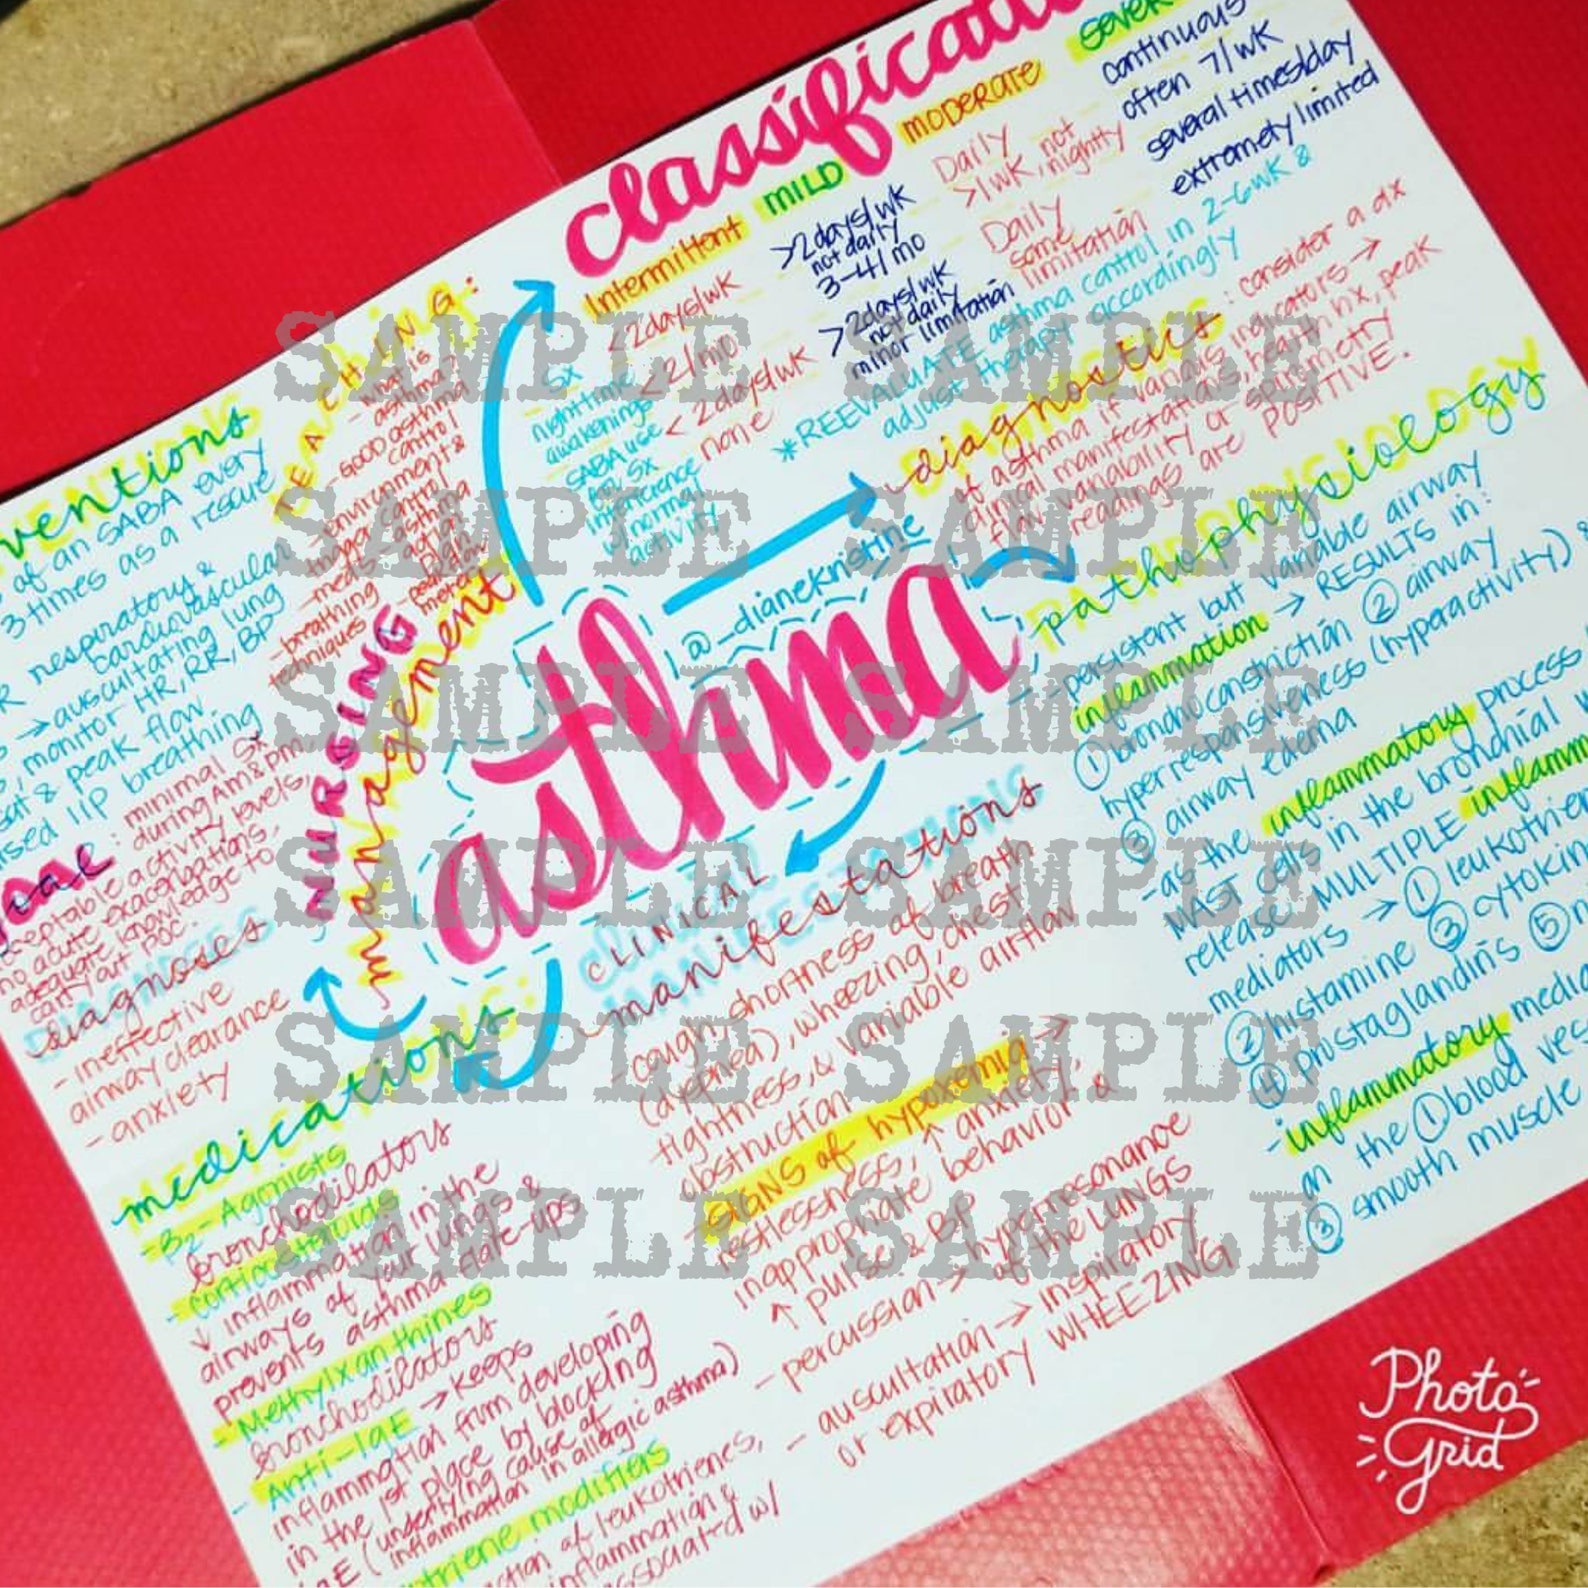 classificati
Intermittent
MILD
MODERATE
SX
<2days/wk
>2days/wk
not daily
Daily
continuous
nighttime
awakenings
<2/mo
3-4/mo
>1/wk, not
nightly
often 7/wk
SABA use
for sx
<2days/wk
>2days/wk
not daily
Daily
several times/day
interference
w/normal
activity
none
minor limitation
some
limitation
extremely limited
*REEVALUATE asthma control in 2-6wk &
adjust therapy accordingly
-diagnostics: consider a dx
of asthma if various indicators →
clinical manifestations, health hx, peak
flow variability or spirometry
readings are POSITIVE.
pathophysiology
-persistent but variable airway
inflammation → RESULTS in:
①bronchoconstriction ②airway
hyperresponsiveness (hyperactivity) &
③ airway edema
-as the inflammatory process
MAST cells in the bronchial
release MULTIPLE
mediators → ①
② histamine ③
④ prostaglandins ⑤
-inflammatory
on the ① blood
③ smooth muscle
@_dianekristine
asthma
CLINICAL
manifestations
-cough, shortness of breath
(dyspnea), wheezing, chest
tightness, & variable airflow
obstruction
-SIGNS of hypoxemia →
restlessness, ↑ anxiety,
inappropriate behavior, &
↑ pulse & BP
-percussion → hyperresonance
of the LUNGS
-auscultation → inspiratory
or expiratory WHEEZING
TEACHING:
-what is
asthma?
-GOOD asthma
control
-environment &
trigger control
-meds -asthma
action
plan
-breathing
techniques
NURSING
management
of an SABA every
3 times as a rescue
respiratory &
cardiovascular
→ auscultating lung
monitor HR, RR, BP
sat & peak flow
breathing
: minimal sx
during Am & pm,
acceptable activity levels,
no acute exacerbations,
adequate knowledge to
carry out POC.
diagnoses
-ineffective
airway clearance
-anxiety
medications:
-B2-Agonists
bronchodilators
-corticosteroids
↓ inflammation in the
airways of your lungs &
prevents asthma flare-ups
-Methylxanthines
bronchodilators
-Anti-IgE → keeps
inflammation from developing
in the 1st place by blocking
IgE (underlying cause of
inflammation in allergic asthma)
modifiers
of leukotrienes,
inflammation &
associated w/
SAMPLE SAMPLE
SAMPLE SAMPLE
SAMPLE SAMPLE
SAMPLE SAMPLE
SAMPLE SAMPLE
SAMPLE SAMPLE
Photo
Grid